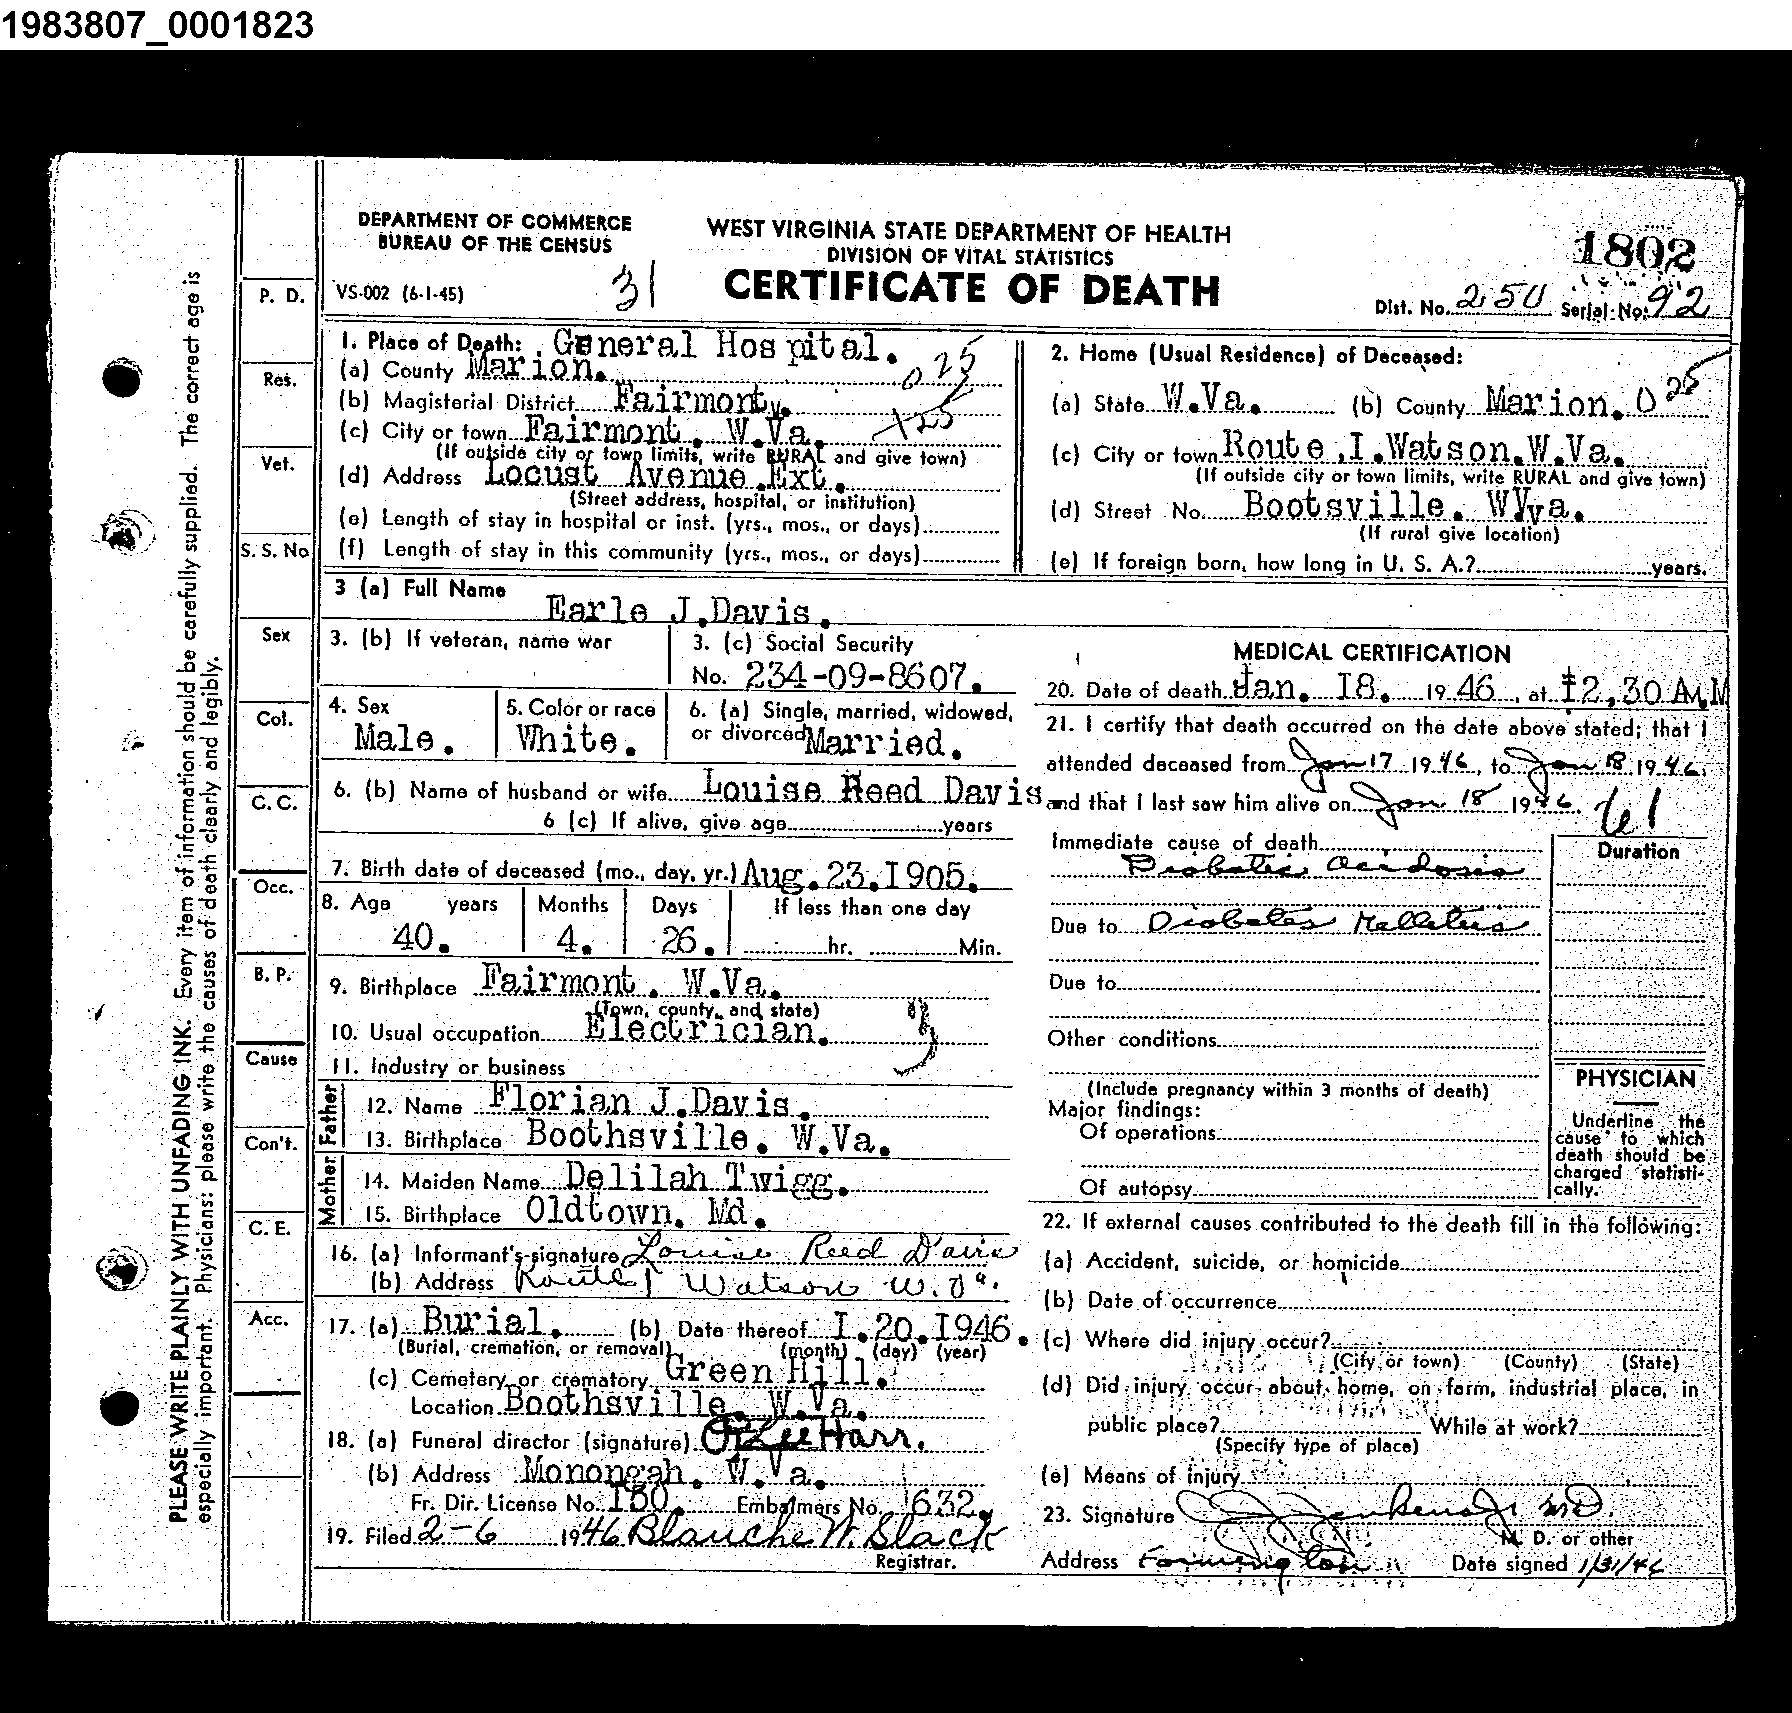 1983807_0001823
DEPARTMENT OF COMMERCE
BUREAU OF THE CENSUS
WEST VIRGINIA STATE DEPARTMENT OF HEALTH
DIVISION OF VITAL STATISTICS
1802
VS-002 (6-1-45)
31
CERTIFICATE OF DEATH
Dist. No. 250 Serial No. 92
1. Place of Death: General Hospital.
(a) County Marion. 025
(b) Magisterial District Fairmont.
(c) City or town Fairmont. W.Va.
(If outside city or town limits, write RURAL and give town)
(d) Address Locust Avenue.Ext.
(Street address, hospital, or institution)
(e) Length of stay in hospital or inst. (yrs., mos., or days)
(f) Length of stay in this community (yrs., mos., or days)
2. Home (Usual Residence) of Deceased:
(a) State W.Va. (b) County Marion. 025
(c) City or town Route .I.Watson.W.Va.
(If outside city or town limits, write RURAL and give town)
(d) Street No. Bootsville. W.Va.
(If rural give location)
(e) If foreign born, how long in U. S. A.? years.
3 (a) Full Name Earle J.Davis.
3. (b) If veteran, name war
3. (c) Social Security
No. 234-09-8607.
4. Sex
Male.
5. Color or race
White.
6. (a) Single, married, widowed,
or divorced Married.
6. (b) Name of husband or wife Louise Reed Davis
6 (c) If alive, give age years
7. Birth date of deceased (mo., day, yr.) Aug.23.I905.
8. Age years Months Days If less than one day
40. 4. 26. hr. Min.
9. Birthplace Fairmont. W.Va.
(Town, county, and state)
10. Usual occupation Electrician.
11. Industry or business
Father
12. Name Florian J.Davis.
13. Birthplace Boothsville. W.Va.
Mother
14. Maiden Name Delilah Twigg.
15. Birthplace Oldtown. Md.
16. (a) Informant's signature Louise Reed Davis
(b) Address Route 1 Watson W.Va.
17. (a) Burial. (b) Date thereof I.20.I946.
(Burial, cremation, or removal) (month) (day) (year)
(c) Cemetery or crematory Green Hill.
Location Boothsville. W.Va.
18. (a) Funeral director (signature) Harr.
(b) Address Monongah. W.Va.
Fr. Dir. License No. I50. Embalmers No. 1632.
19. Filed 2-6 1946 Blanche W. Slack
Registrar.
MEDICAL CERTIFICATION
20. Date of death Jan. I8. 1946, at I2,30 A.M
21. I certify that death occurred on the date above stated; that I
attended deceased from Jan 17 1946, to Jan 18, 1946,
and that I last saw him alive on Jan 18 1946. 61
Immediate cause of death
Diabetic acidosis
Duration
Due to Diabetes Mellitus
Due to
Other conditions
(Include pregnancy within 3 months of death)
Major findings:
Of operations
Of autopsy
PHYSICIAN
Underline the
cause to which
death should be
charged statisti-
cally.
22. If external causes contributed to the death fill in the following:
(a) Accident, suicide, or homicide
(b) Date of occurrence
(c) Where did injury occur?
(City or town) (County) (State)
(d) Did injury occur about home, on farm, industrial place, in
public place? While at work?
(Specify type of place)
(e) Means of injury
23. Signature MD.
M. D. or other
Address Farmington Date signed 1/31/46
P. D.
Res.
Vet.
S. S. No
Sex
Col.
C. C.
Occ.
B. P.
Cause
Con't.
C. E.
Acc.
PLEASE WRITE PLAINLY WITH UNFADING INK. Every item of information should be carefully supplied. The correct age is
especially important. Physicians: please write the causes of death clearly and legibly.